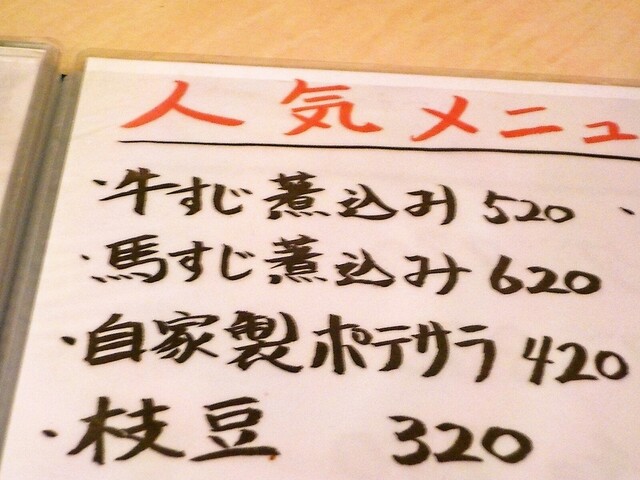 人気メニュ
・牛すじ煮込み 520
・馬すじ煮込み 620
・自家製ポテサラ 420
・枝豆 320